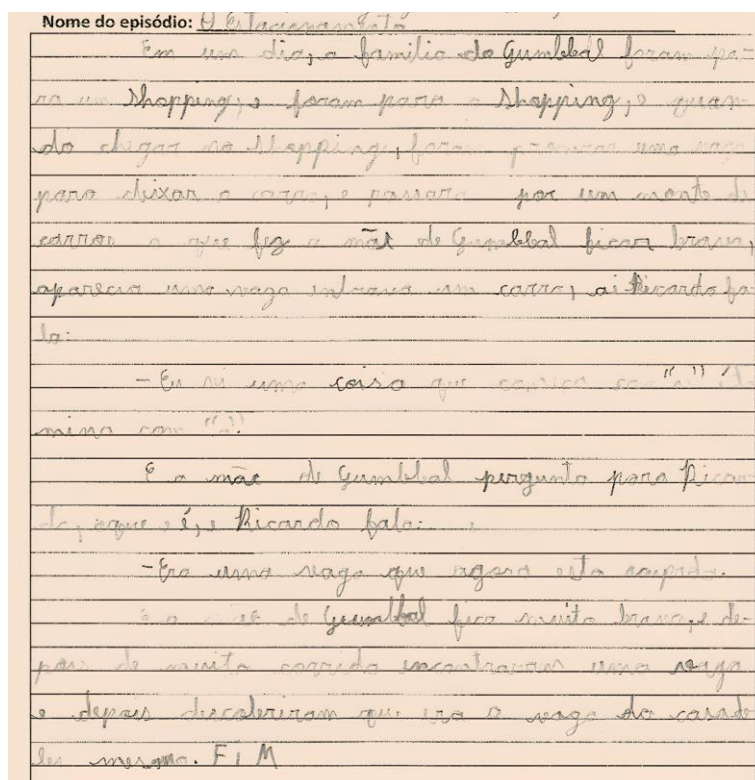 Nome do episódio: O Estacionamento
Em um dia, a familia do Gumbbal foram pa-
ra um shopping, e foram para o shopping, e quan-
do chegar no shopping, foram procurar uma vaga
para deixar o carro, e passara por um monte de
carros o que fez a mãe de Gumbbal ficar brava,
aparecia uma vaga entrava um carro, ai Ricardo fa-
la:
- Eu vi uma coisa que começa com "v"
mina com
E a mãe de Gumbbal pergunta para Ricar
do, oque e é, e Ricardo fala:
- Era uma vaga que agora esta
é a mãe de Gumbbal fica muito brava, e de-
pois de muita corrida encontravam uma vaga
e depois descobriram que era a vaga da casade
les mesmo. FIM